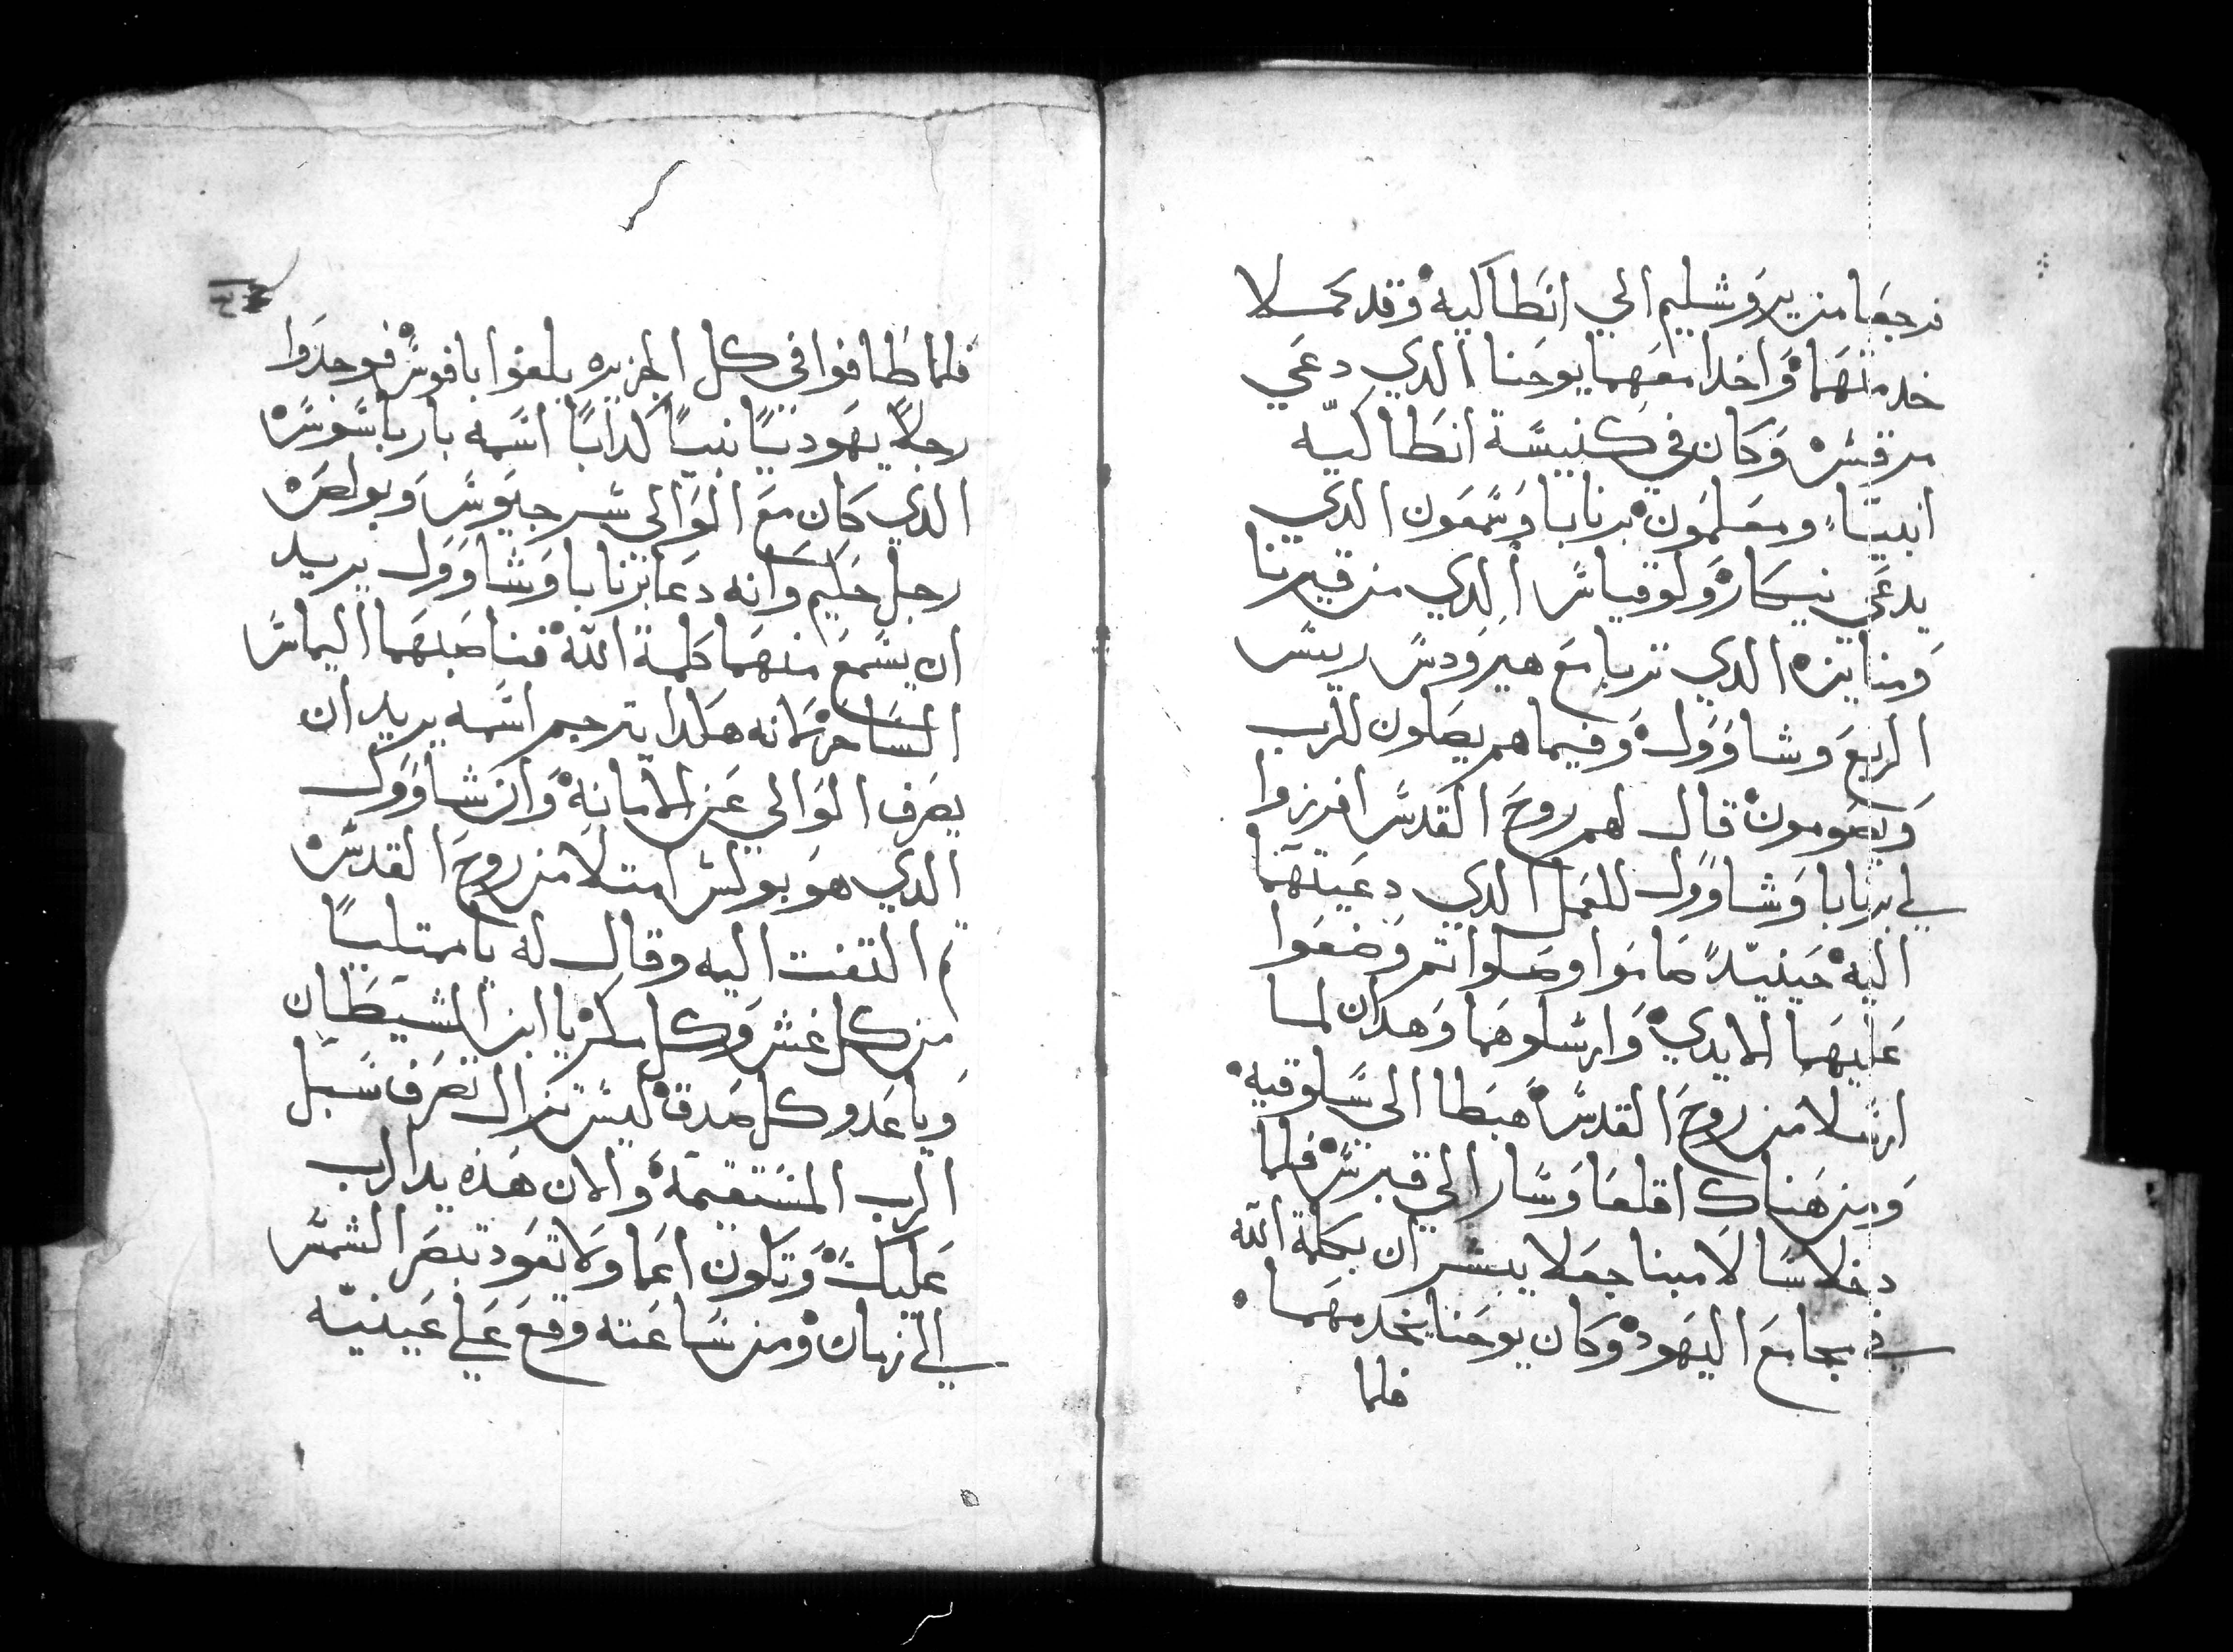 فرجعا من يروشليم الي انطاكيه وقد كملا
خدمتهما واخدا معهما يوحنا الدي دعي
مرقس وكان في كنيسة انطاكيه
انبياء ومعلمون برنابا وسمعون الدي
يدعي نيكار ولوقياس الدي من قيرنا
ومناين الدي تربا مع هيرودس رييس
الربع وشاوول وفيما هم يصلون للرب
ويصومون قال لهم روح القدس افرزوا
لي برنابا وشاوول للعمل الدي دعيتهما
اليه حينيدً صاموا وصلوا تم وضعوا
عليهما الايدي وارسلوهما وهدان لما
ارسلا من روح القدس هبطا الي سلوقيه
ومن هناك اقلعا وسارا الي قبرس فلما
دخلا سالامينا جعلا يبشران بكلمة الله
في مجامع اليهود وكان يوحنا يخدمهما
فلما
فلما طافوا في كل الجزيره بلغوا بافوس فوجدوا
رجلاً يهودياً نبياً كداباً اسمه بارياسوس
الدي كان مع الوالي سرجيوس وبولص
رجل حكيم وانه دعا برنابا وشاوول يريد
ان يسمع منهما كلمة الله فناصبهما اليماس
الساحر لانه هكدا يترجم اسمه يريد ان
يصرف الوالي عن الامانه وان شاوول
الدي هو بولس امتلا من روح القدس
تم التفت اليه وقال له يا ممتلياً
من كل غش وكل مكر يا ابن الشيطان
ويا عدو كل صدق ليس تزال تصرف سبل
الرب المستقيمه والان هذه يد الرب
عليك وتكون اعما ولا تعود تبصر الشمس
الي زمان ومن ساعته وقع علي عينيه